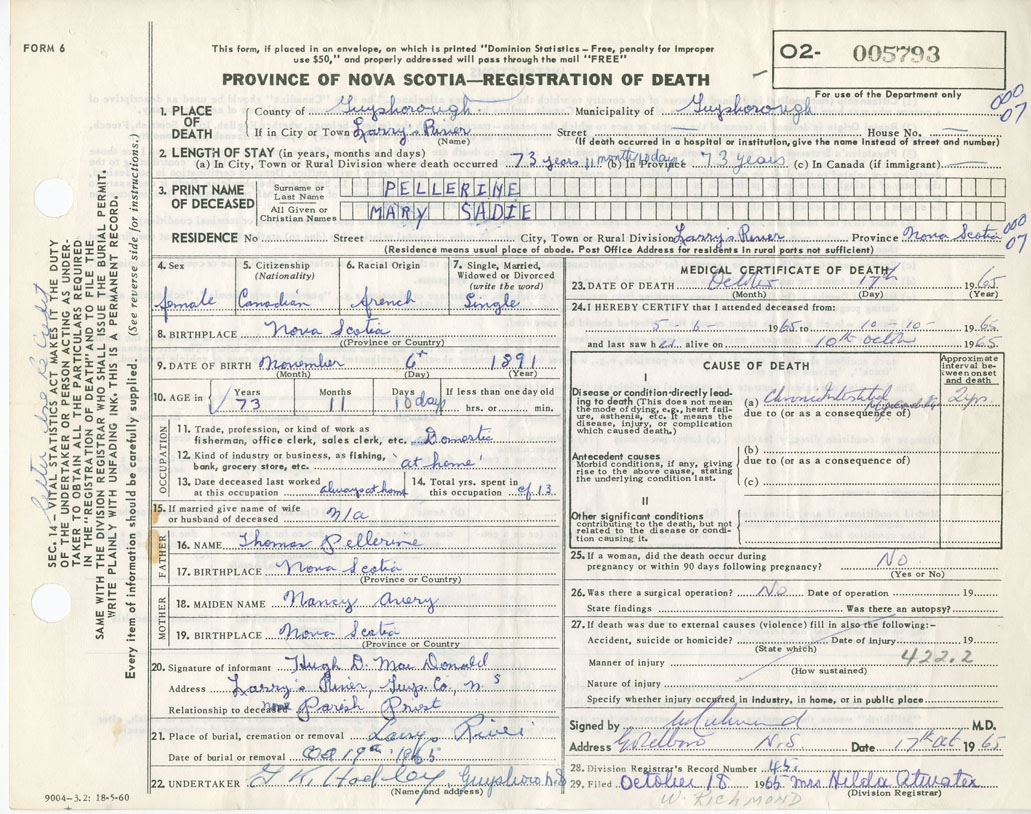 FORM 6
This form, if placed in an envelope, on which is printed "Dominion Statistics – Free, penalty for improper
use $50," and properly addressed will pass through the mail "FREE"
PROVINCE OF NOVA SCOTIA—REGISTRATION OF DEATH
02- 005793
For use of the Department only
000
07
1. PLACE OF DEATH County of Guysborough Municipality of Guysborough
If in City or Town Larry's River Street — House No. —
(Name) (If death occurred in a hospital or institution, give the name instead of street and number)
2. LENGTH OF STAY (in years, months and days)
(a) In City, Town or Rural Division where death occurred 73 years 11 months 10 days (b) In Province 73 years (c) In Canada (if immigrant) —
3. PRINT NAME OF DECEASED
Surname or Last Name PELLERINE
All Given or Christian Names MARY SADIE
RESIDENCE No Street City, Town or Rural Division Larry's River Province Nova Scotia
000
07
(Residence means usual place of abode. Post Office Address for residents in rural parts not sufficient)
4. Sex female
5. Citizenship (Nationality) Canadian
6. Racial Origin french
7. Single, Married, Widowed or Divorced (write the word) Single
8. BIRTHPLACE Nova Scotia
(Province or Country)
9. DATE OF BIRTH November 6th 1891
(Month) (Day) (Year)
10. AGE in Years 73 Months 11 Days 10 days If less than one day old hrs. or min.
OCCUPATION
11. Trade, profession, or kind of work as
fisherman, office clerk, sales clerk, etc. Domestic
12. Kind of industry or business, as fishing,
bank, grocery store, etc. 'at home'
13. Date deceased last worked at this occupation always at home
14. Total yrs. spent in this occupation
15. If married give name of wife
or husband of deceased n/a
FATHER
16. NAME Thomas Pellerine
17. BIRTHPLACE Nova Scotia
(Province or Country)
MOTHER
18. MAIDEN NAME Nancy Avery
19. BIRTHPLACE Nova Scotia
(Province or Country)
20. Signature of informant Hugh D. MacDonald
Address Larry's River, Guys. Co., N S
Relationship to deceased Parish Priest
21. Place of burial, cremation or removal Larry's River
Date of burial or removal Oct 19th 1965
22. UNDERTAKER Guysboro N.S
(Name and address)
9004–3.2: 18-5-60
MEDICAL CERTIFICATE OF DEATH
23. DATE OF DEATH October 17th 1965
(Month) (Day) (Year)
24. I HEREBY CERTIFY that I attended deceased from:
5-6- 1965 to 10-10- 1965
and last saw her alive on 10th Octbr 1965
CAUSE OF DEATH
Approximate interval between onset and death
I
Disease or condition directly leading to death (This does not mean the mode of dying, e.g., heart failure, asthenia, etc. It means the disease, injury, or complication which caused death.)
(a) Chronic Interstitial 2 yrs.
due to (or as a consequence of)
Antecedent causes
Morbid conditions, if any, giving rise to the above cause, stating the underlying condition last.
(b)
due to (or as a consequence of)
(c)
II
Other significant conditions
contributing to the death, but not related to the disease or condition causing it.
25. If a woman, did the death occur during
pregnancy or within 90 days following pregnancy? NO
(Yes or No)
26. Was there a surgical operation? No Date of operation 19
State findings Was there an autopsy?
27. If death was due to external causes (violence) fill in also the following:–
Accident, suicide or homicide? Date of injury 19
(State which)
Manner of injury 422.2
(How sustained)
Nature of injury
Specify whether injury occurred in industry, in home, or in public place
Signed by M.D.
Address Goldboro N.S. Date 17th Oct 1965
28. Division Registrar's Record Number 45.
29. Filed October 18 1965 Mrs Hilda Atwater
(Division Registrar)
W. RICHMOND
SEC. 14 – VITAL STATISTICS ACT MAKES IT THE DUTY
OF THE UNDERTAKER OR PERSON ACTING AS UNDER-
TAKER TO OBTAIN ALL THE PARTICULARS REQUIRED
IN THE "REGISTRATION OF DEATH" AND TO FILE THE
SAME WITH THE DIVISION REGISTRAR WHO SHALL ISSUE THE BURIAL PERMIT.
WRITE PLAINLY WITH UNFADING INK. THIS IS A PERMANENT RECORD.
Every item of information should be carefully supplied. (See reverse side for instructions.)